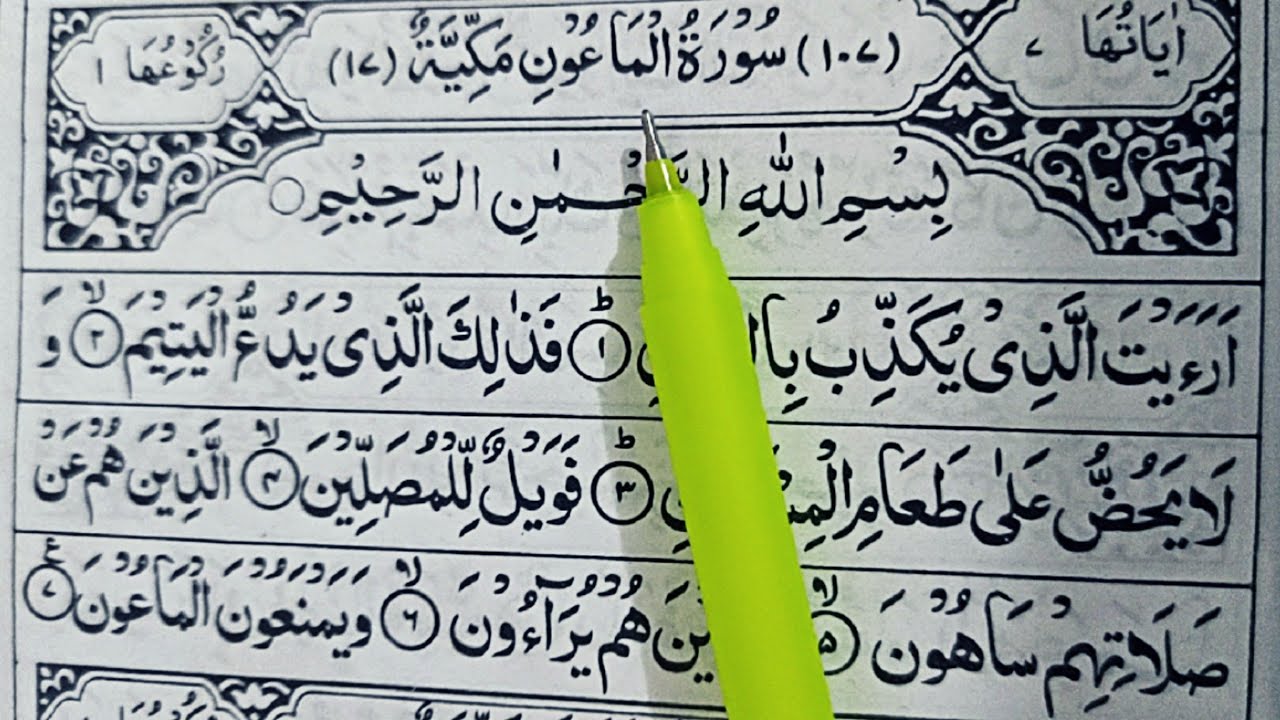 اٰیَاتُهَا ۷ (۱۰۷) سُوْرَةُ الْمَاعُوْنِ مَكِّیَّةٌ (۱۷) رُكُوْعُهَا ۱
بِسْمِ اللّٰهِ الرَّحْمٰنِ الرَّحِیْمِ
اَرَءَیْتَ الَّذِیْ یُكَذِّبُ ؕ۱ فَذٰلِكَ الَّذِیْ یَدُعُّ الْیَتِیْمَ ۙ۲ وَ
لَا یَحُضُّ عَلٰی طَعَامِ ؕ۳ فَوَیْلٌ لِّلْمُصَلِّیْنَ ۙ۴ الَّذِیْنَ هُمْ عَنْ
صَلَاتِهِمْ سَاهُوْنَ ۙ۵ هُمْ یُرَآءُوْنَ ۙ۶ وَیَمْنَعُوْنَ الْمَاعُوْنَ ۷ع